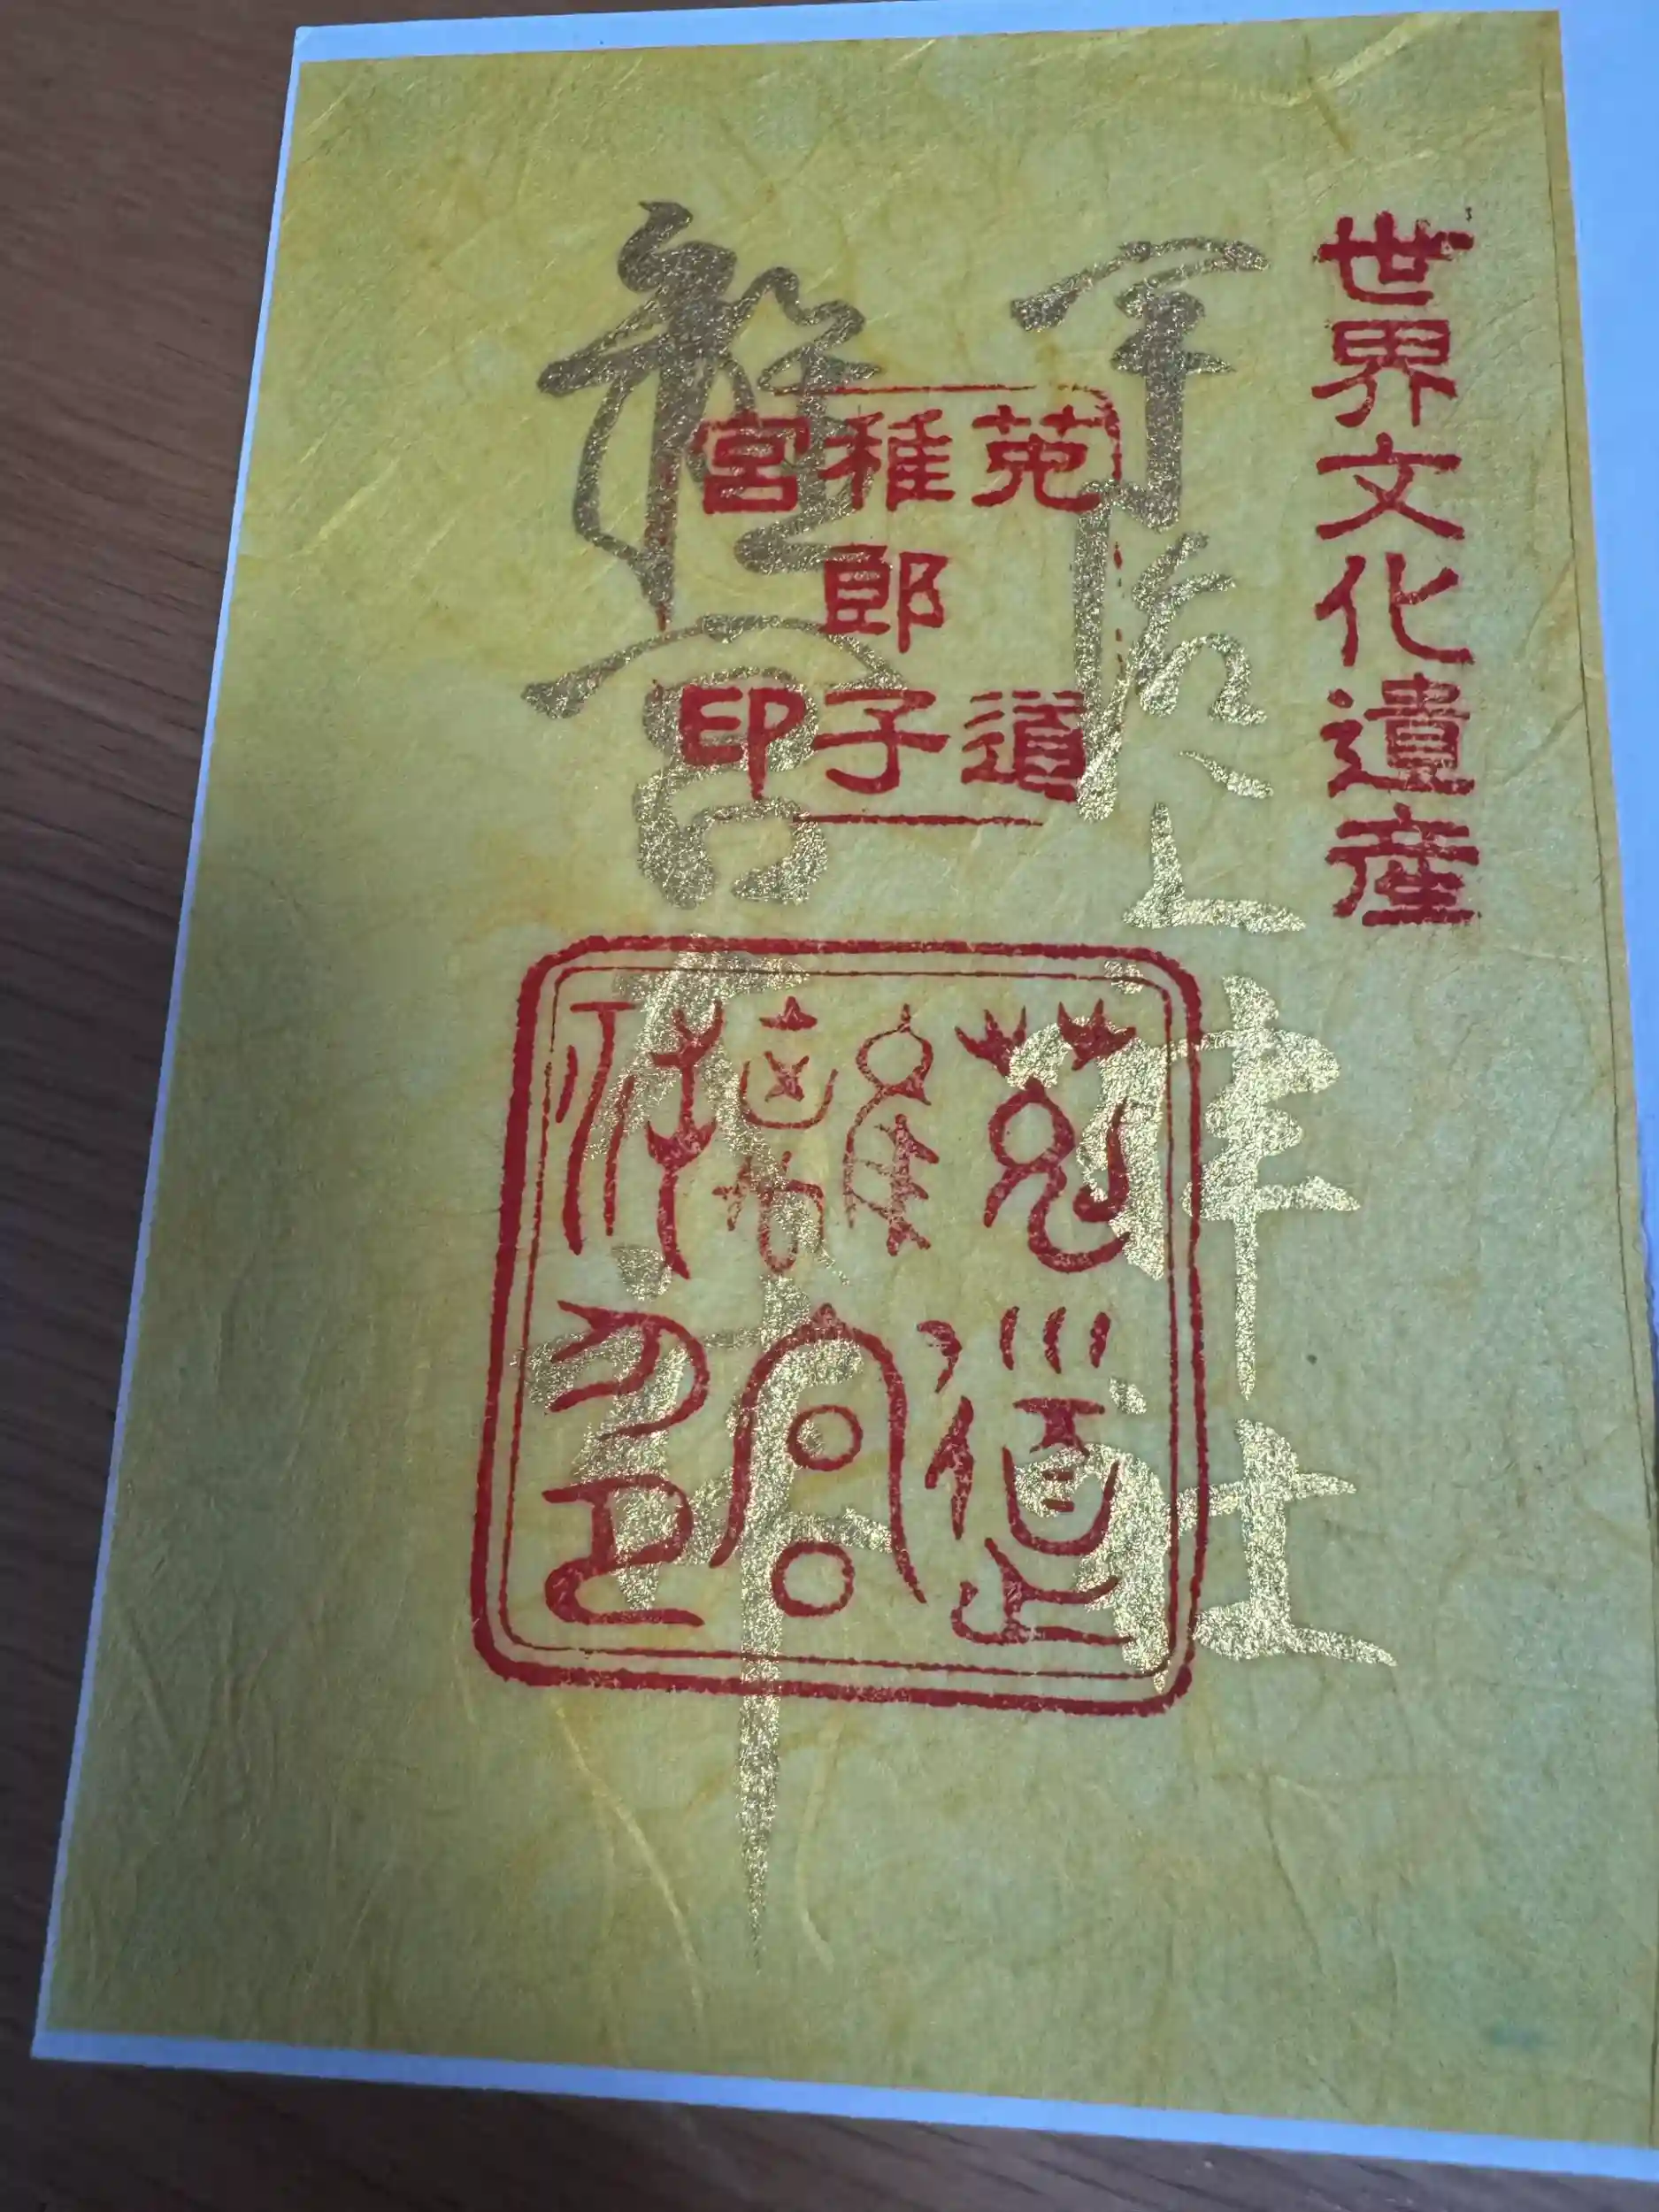 世界文化遺産
宇治上神社
離宮
菟道
稚郎子
宮印
菟道